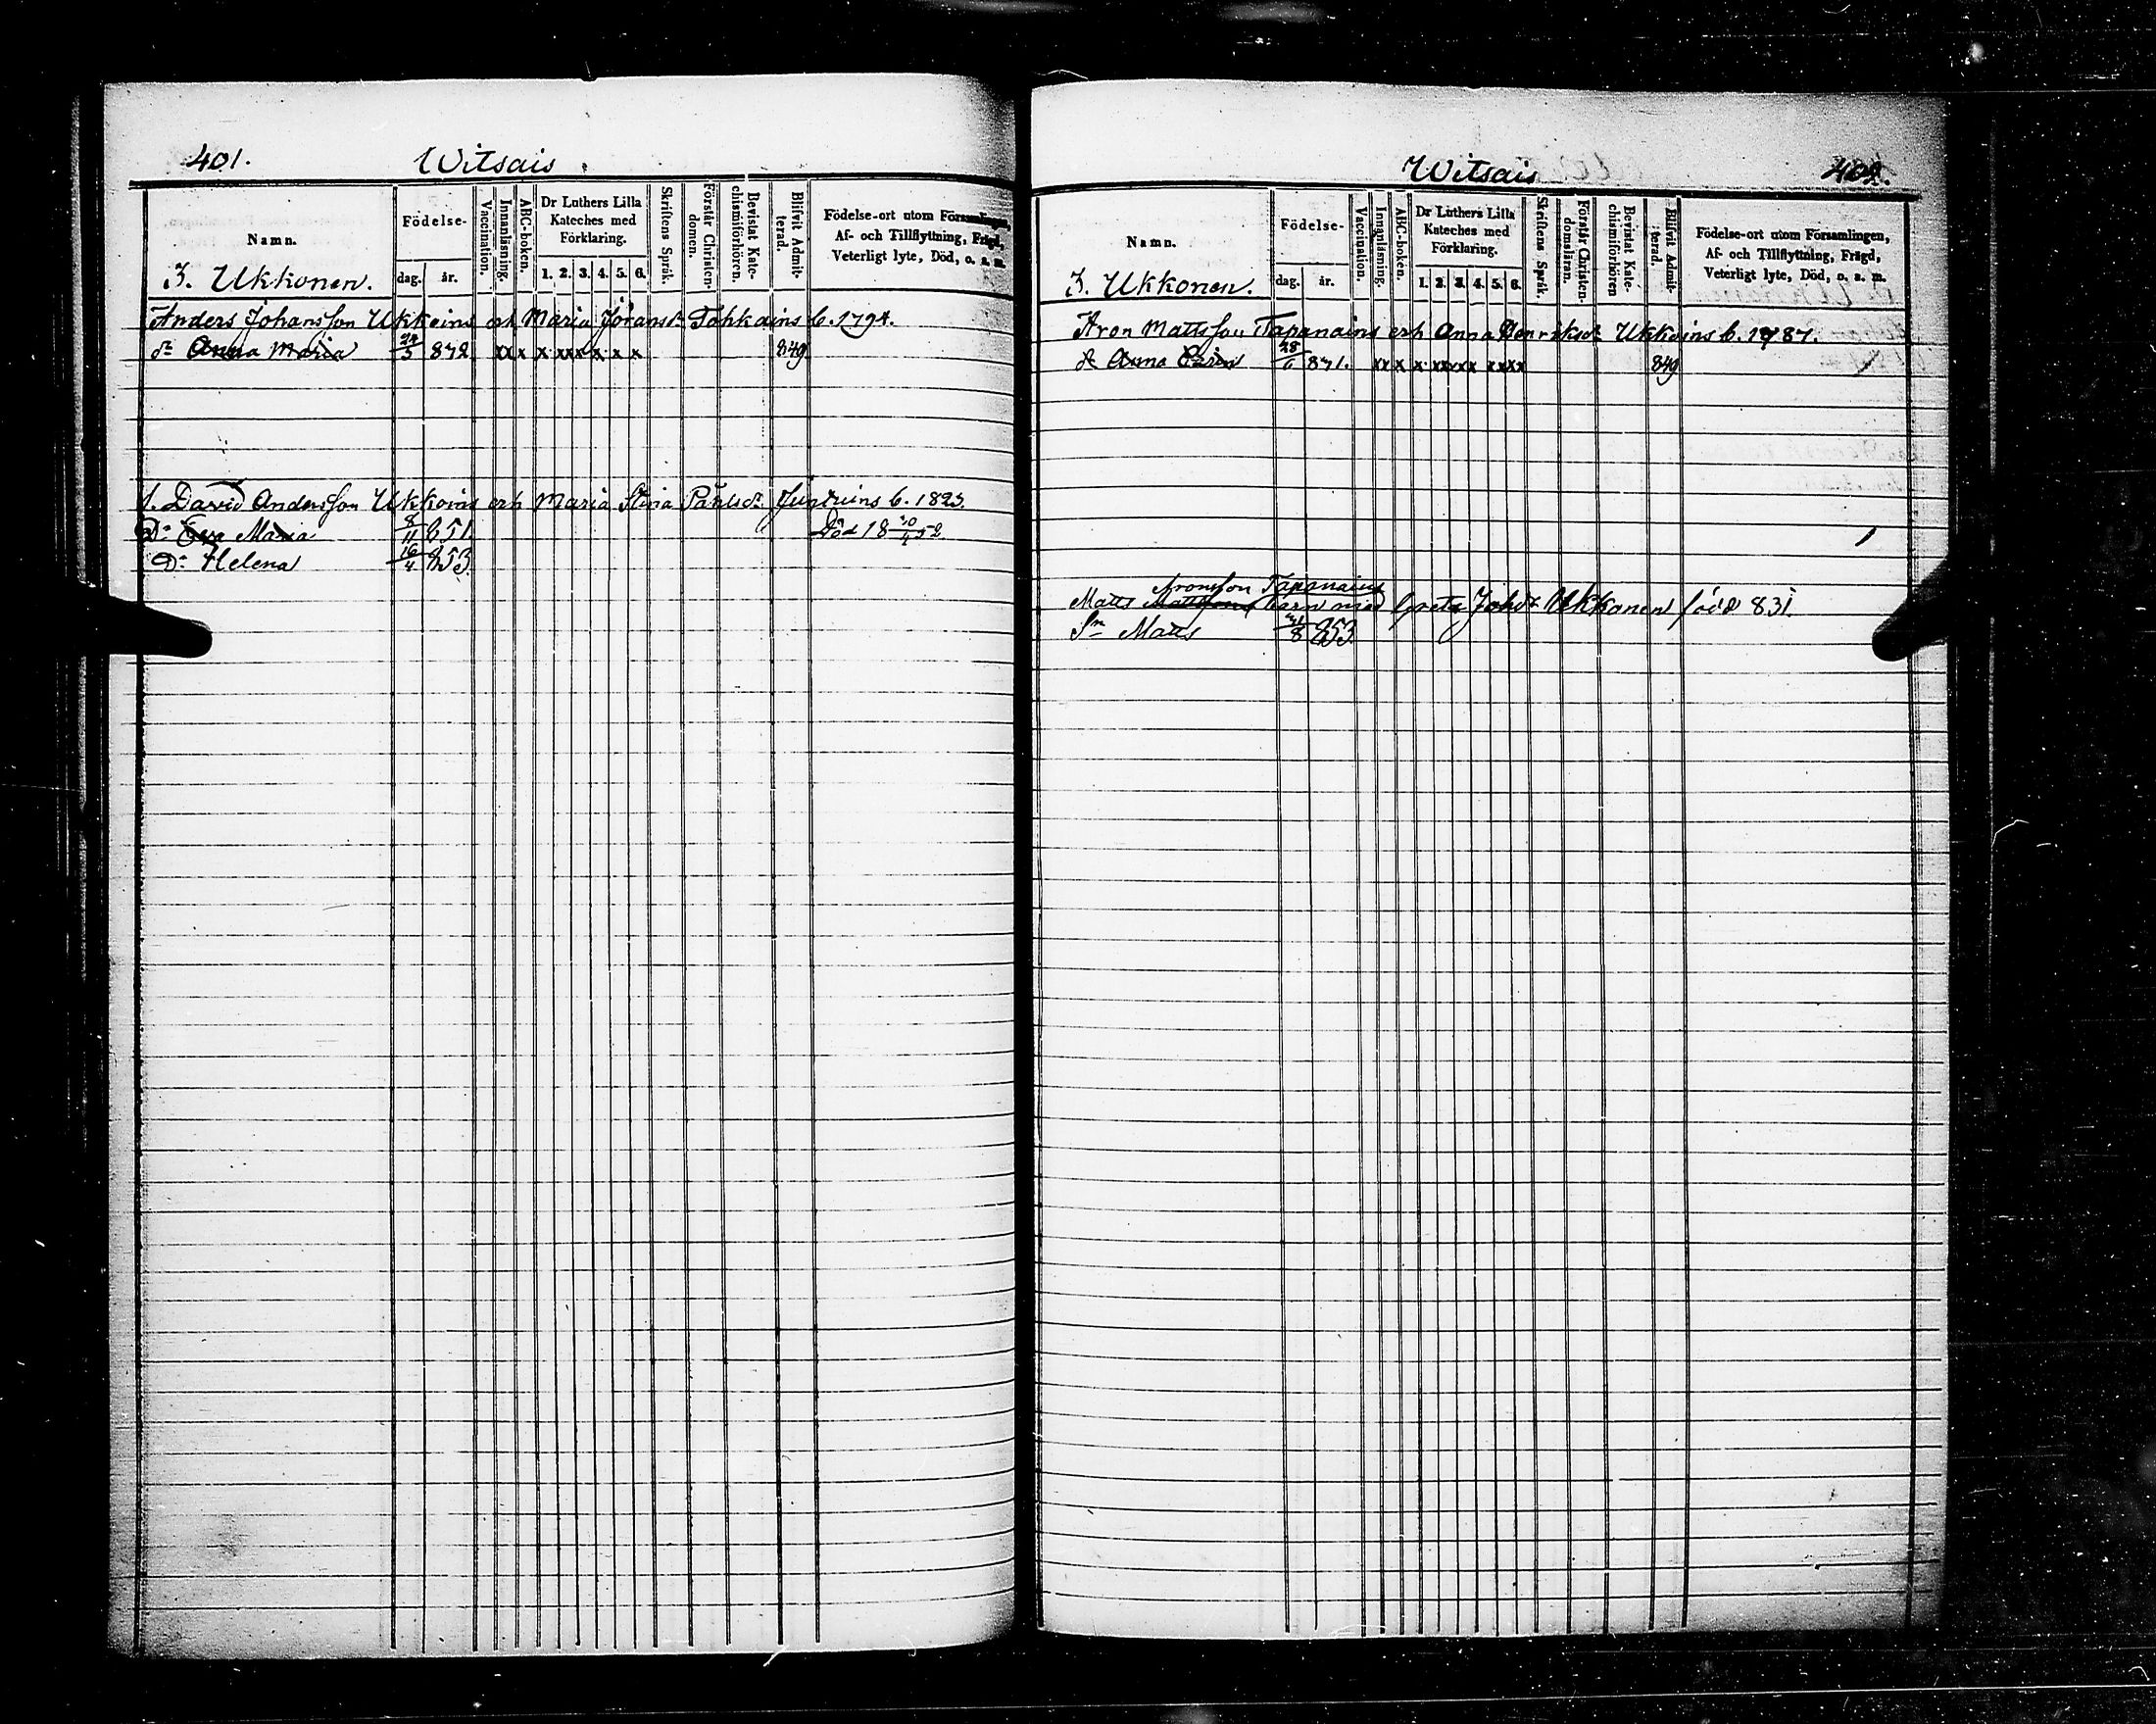 401. Witsais
Namn.
Födelse-
dag. år.
Vaccination.
Innanläsning.
ABC-boken.
Dr Luthers Lilla
Kateches med
Förklaring.
1. 2. 3. 4. 5. 6.
Skriftens Språk.
Förstår Christen-
domen.
Bevistat Kate-
chismiförhören.
Blifvit Admit-
terad.
Födelse-ort utom Församlingen,
Af- och Tillflyttning, Frägd,
Veterligt lyte, Död, o. s. m.
3. Ukkonen.
Anders Johansson Ukkoins och Maria Jöransdr Tohkains b. 1794.
dr Anna Maria 24/3 832 x x x x x x x x x 849
S. David Andersson Ukkoins och Maria Stina Paulsdr b. 1823.
Dr Eva Maria 8/11 851. Död 18 /4 52
Dr Helena 16/4 853.
Witsais 402.
Namn.
Födelse-
dag. år.
Vaccination.
Innanläsning.
ABC-boken.
Dr Luthers Lilla
Kateches med
Förklaring.
1. 2. 3. 4. 5. 6.
Skriftens Språk.
Förstår Christen-
domsläran.
Bevistat Kate-
chismiförhören
Blifvit Admit-
terad.
Födelse-ort utom Församlingen,
Af- och Tillflyttning, Frägd,
Veterligt lyte, Död, o. s. m.
3. Ukkonen.
Aron Mattsson Tapanains och Anna Henriksdr Ukkoins b. 1787.
dr Anna Carin 28/6 831. xx x x xxxxx xxxx 849
Aronsson Tapanains
Matts Mattssons barn med Greta Johdr Ukkonen född 831.
Sn Matts /8 853